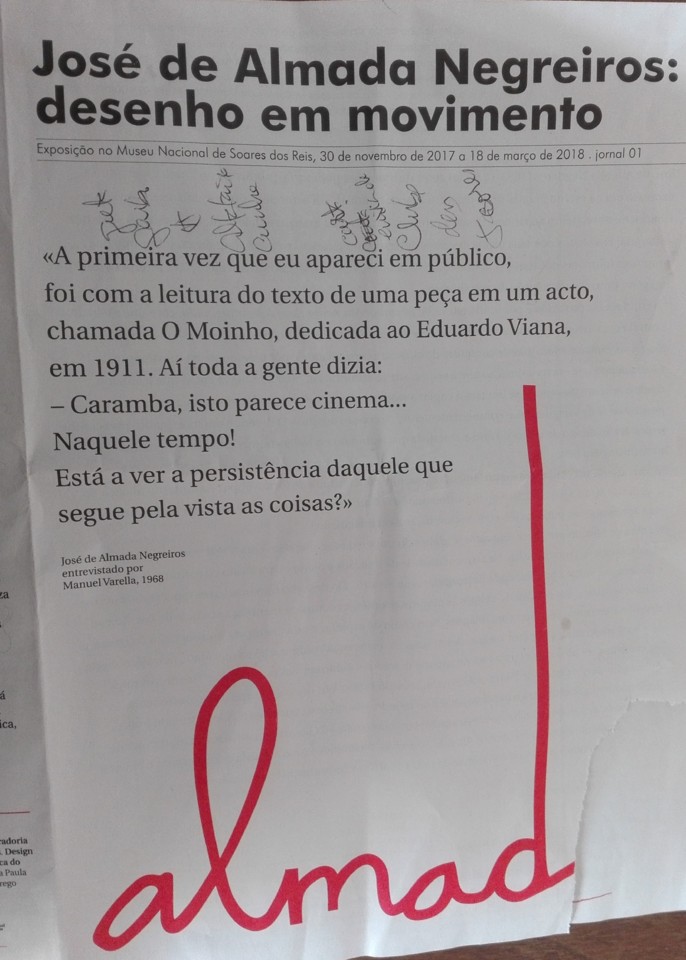 José de Almada Negreiros:
desenho em movimento
Exposição no Museu Nacional de Soares dos Reis, 30 de novembro de 2017 a 18 de março de 2018 . jornal 01
«A primeira vez que eu apareci em público,
foi com a leitura do texto de uma peça em um acto,
chamada O Moinho, dedicada ao Eduardo Viana,
em 1911. Aí toda a gente dizia:
– Caramba, isto parece cinema...
Naquele tempo!
Está a ver a persistência daquele que
segue pela vista as coisas?»
José de Almada Negreiros
entrevistado por
Manuel Varella, 1968
almad
za
á
ica,
radoria
. Design
ca do
a Paula
rego